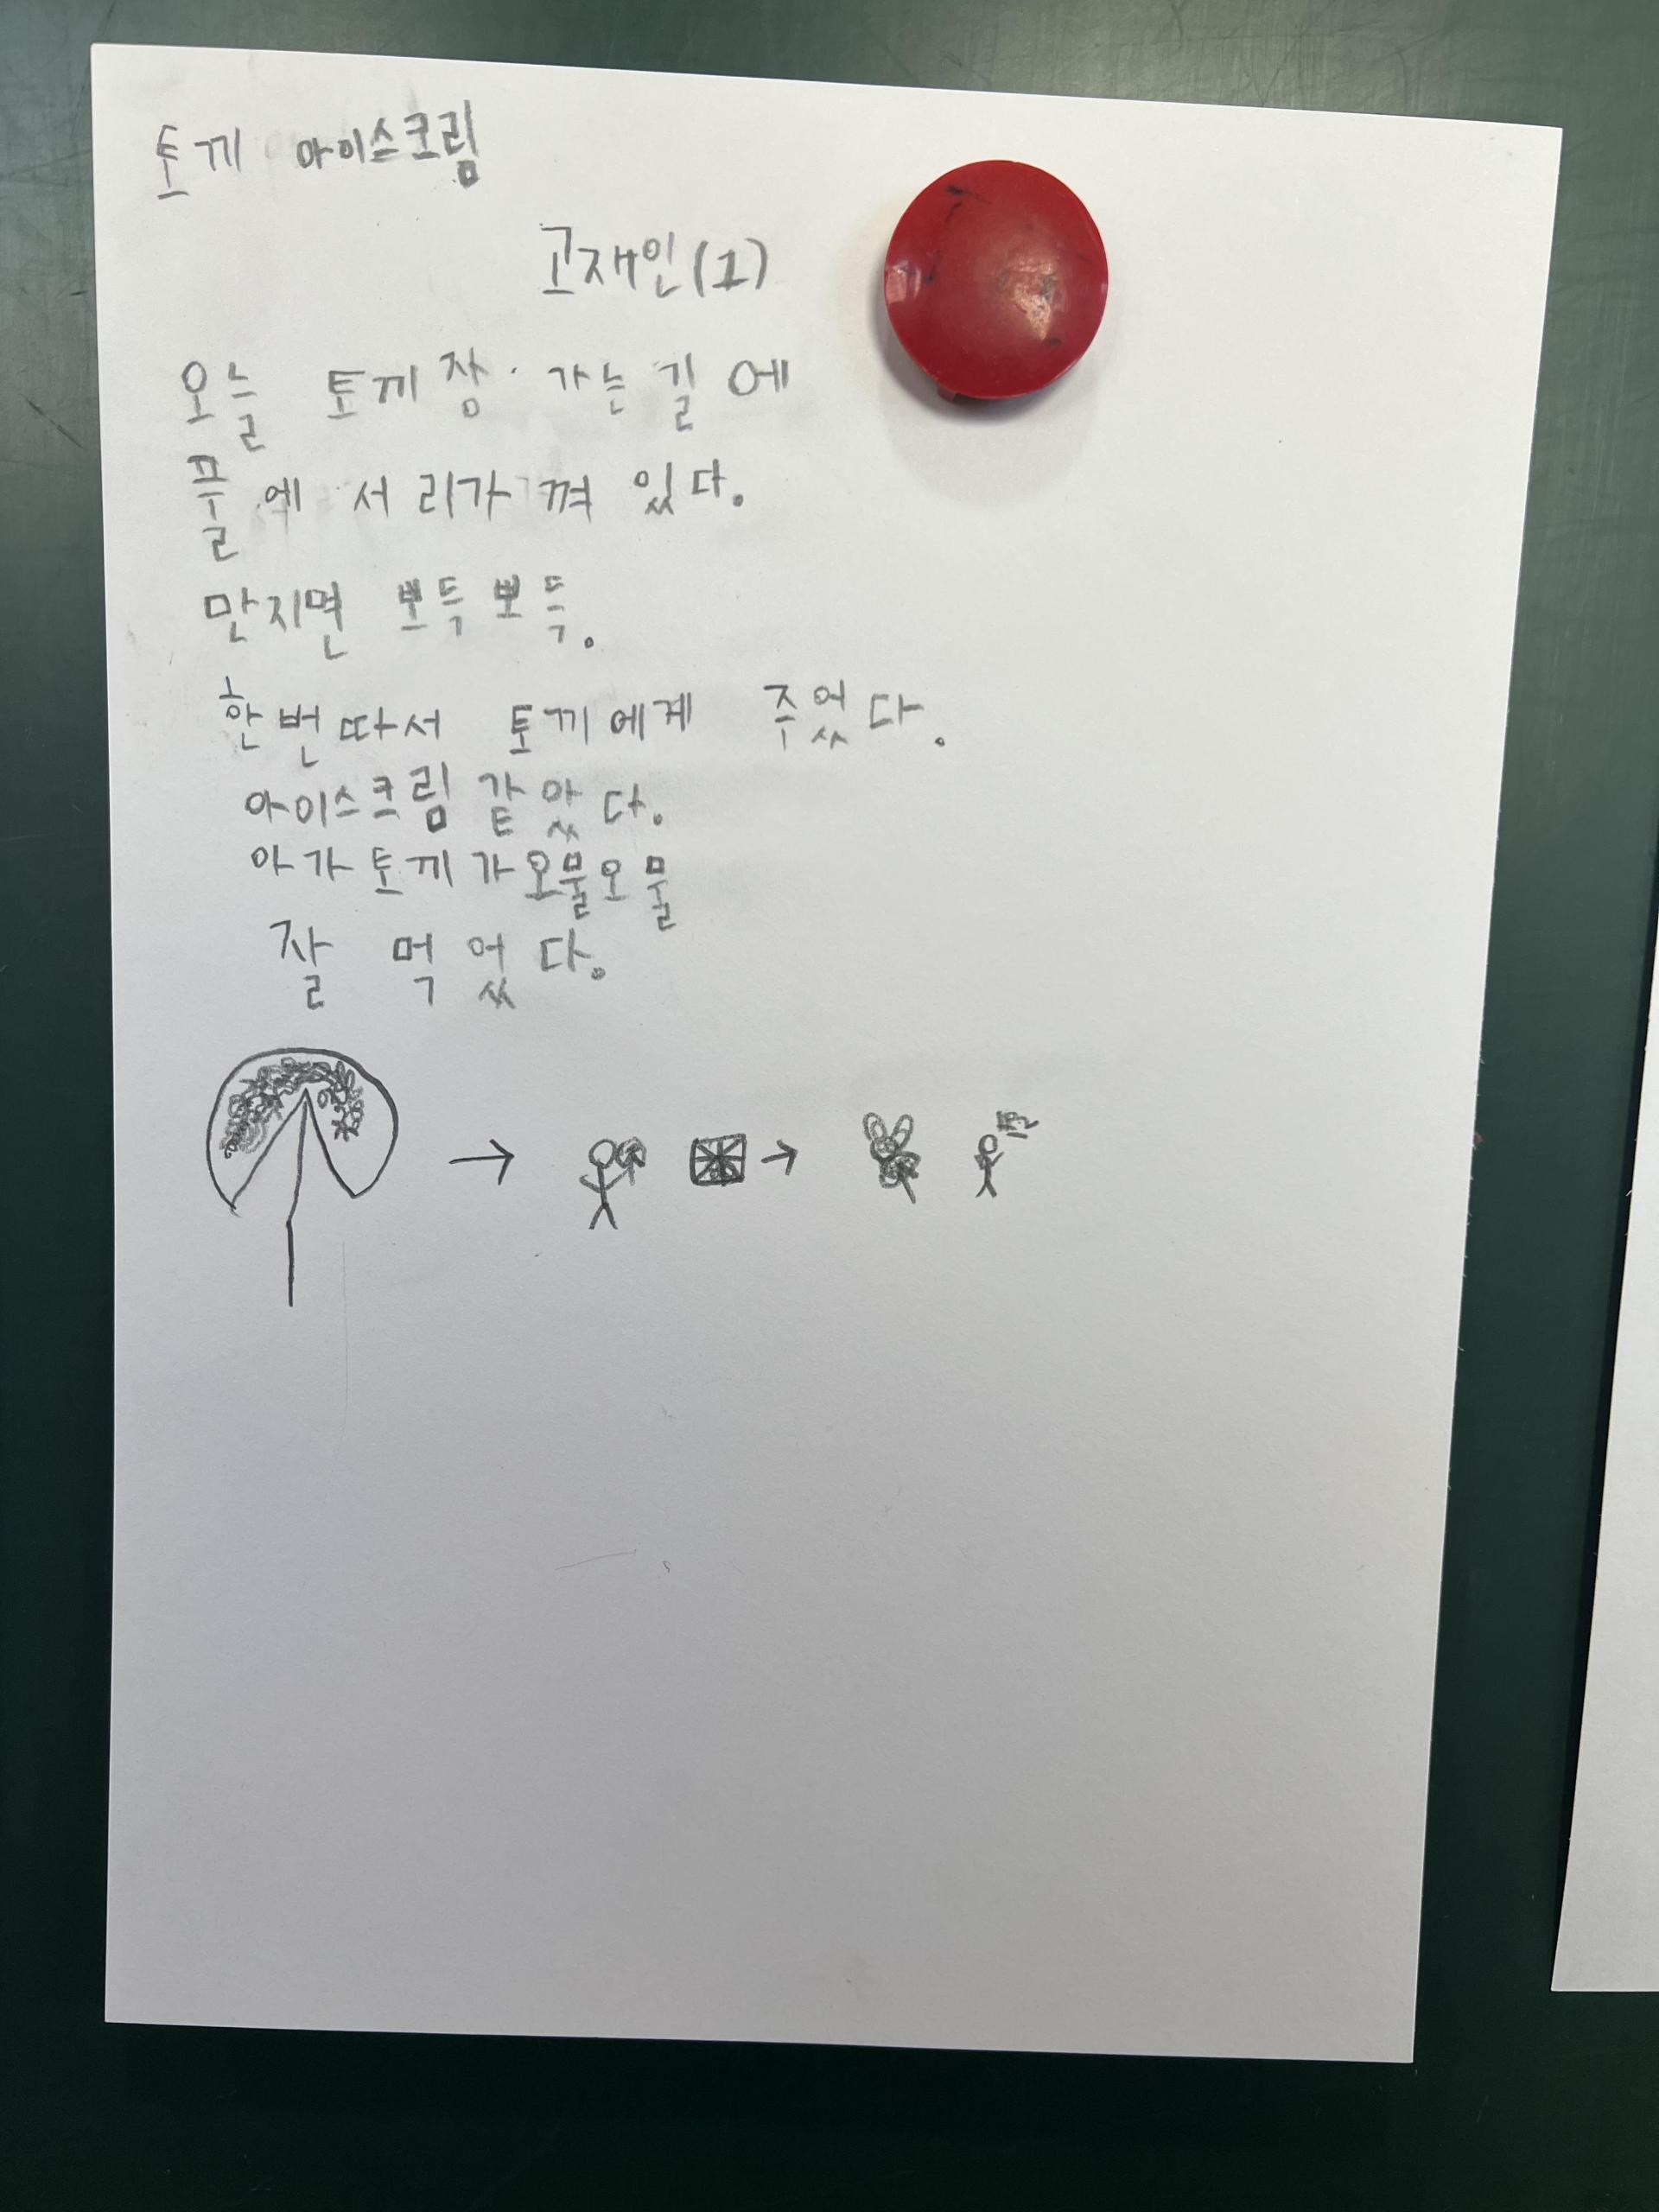 토끼 아이스크림
고재인(1)
오늘 토끼장 가는길에
풀에 서리가 껴 있다.
만지면 뽀득뽀득.
한번따서 토끼에게 주었다.
아이스크림 같았다.
아가토끼가오물오물
잘 먹었다.